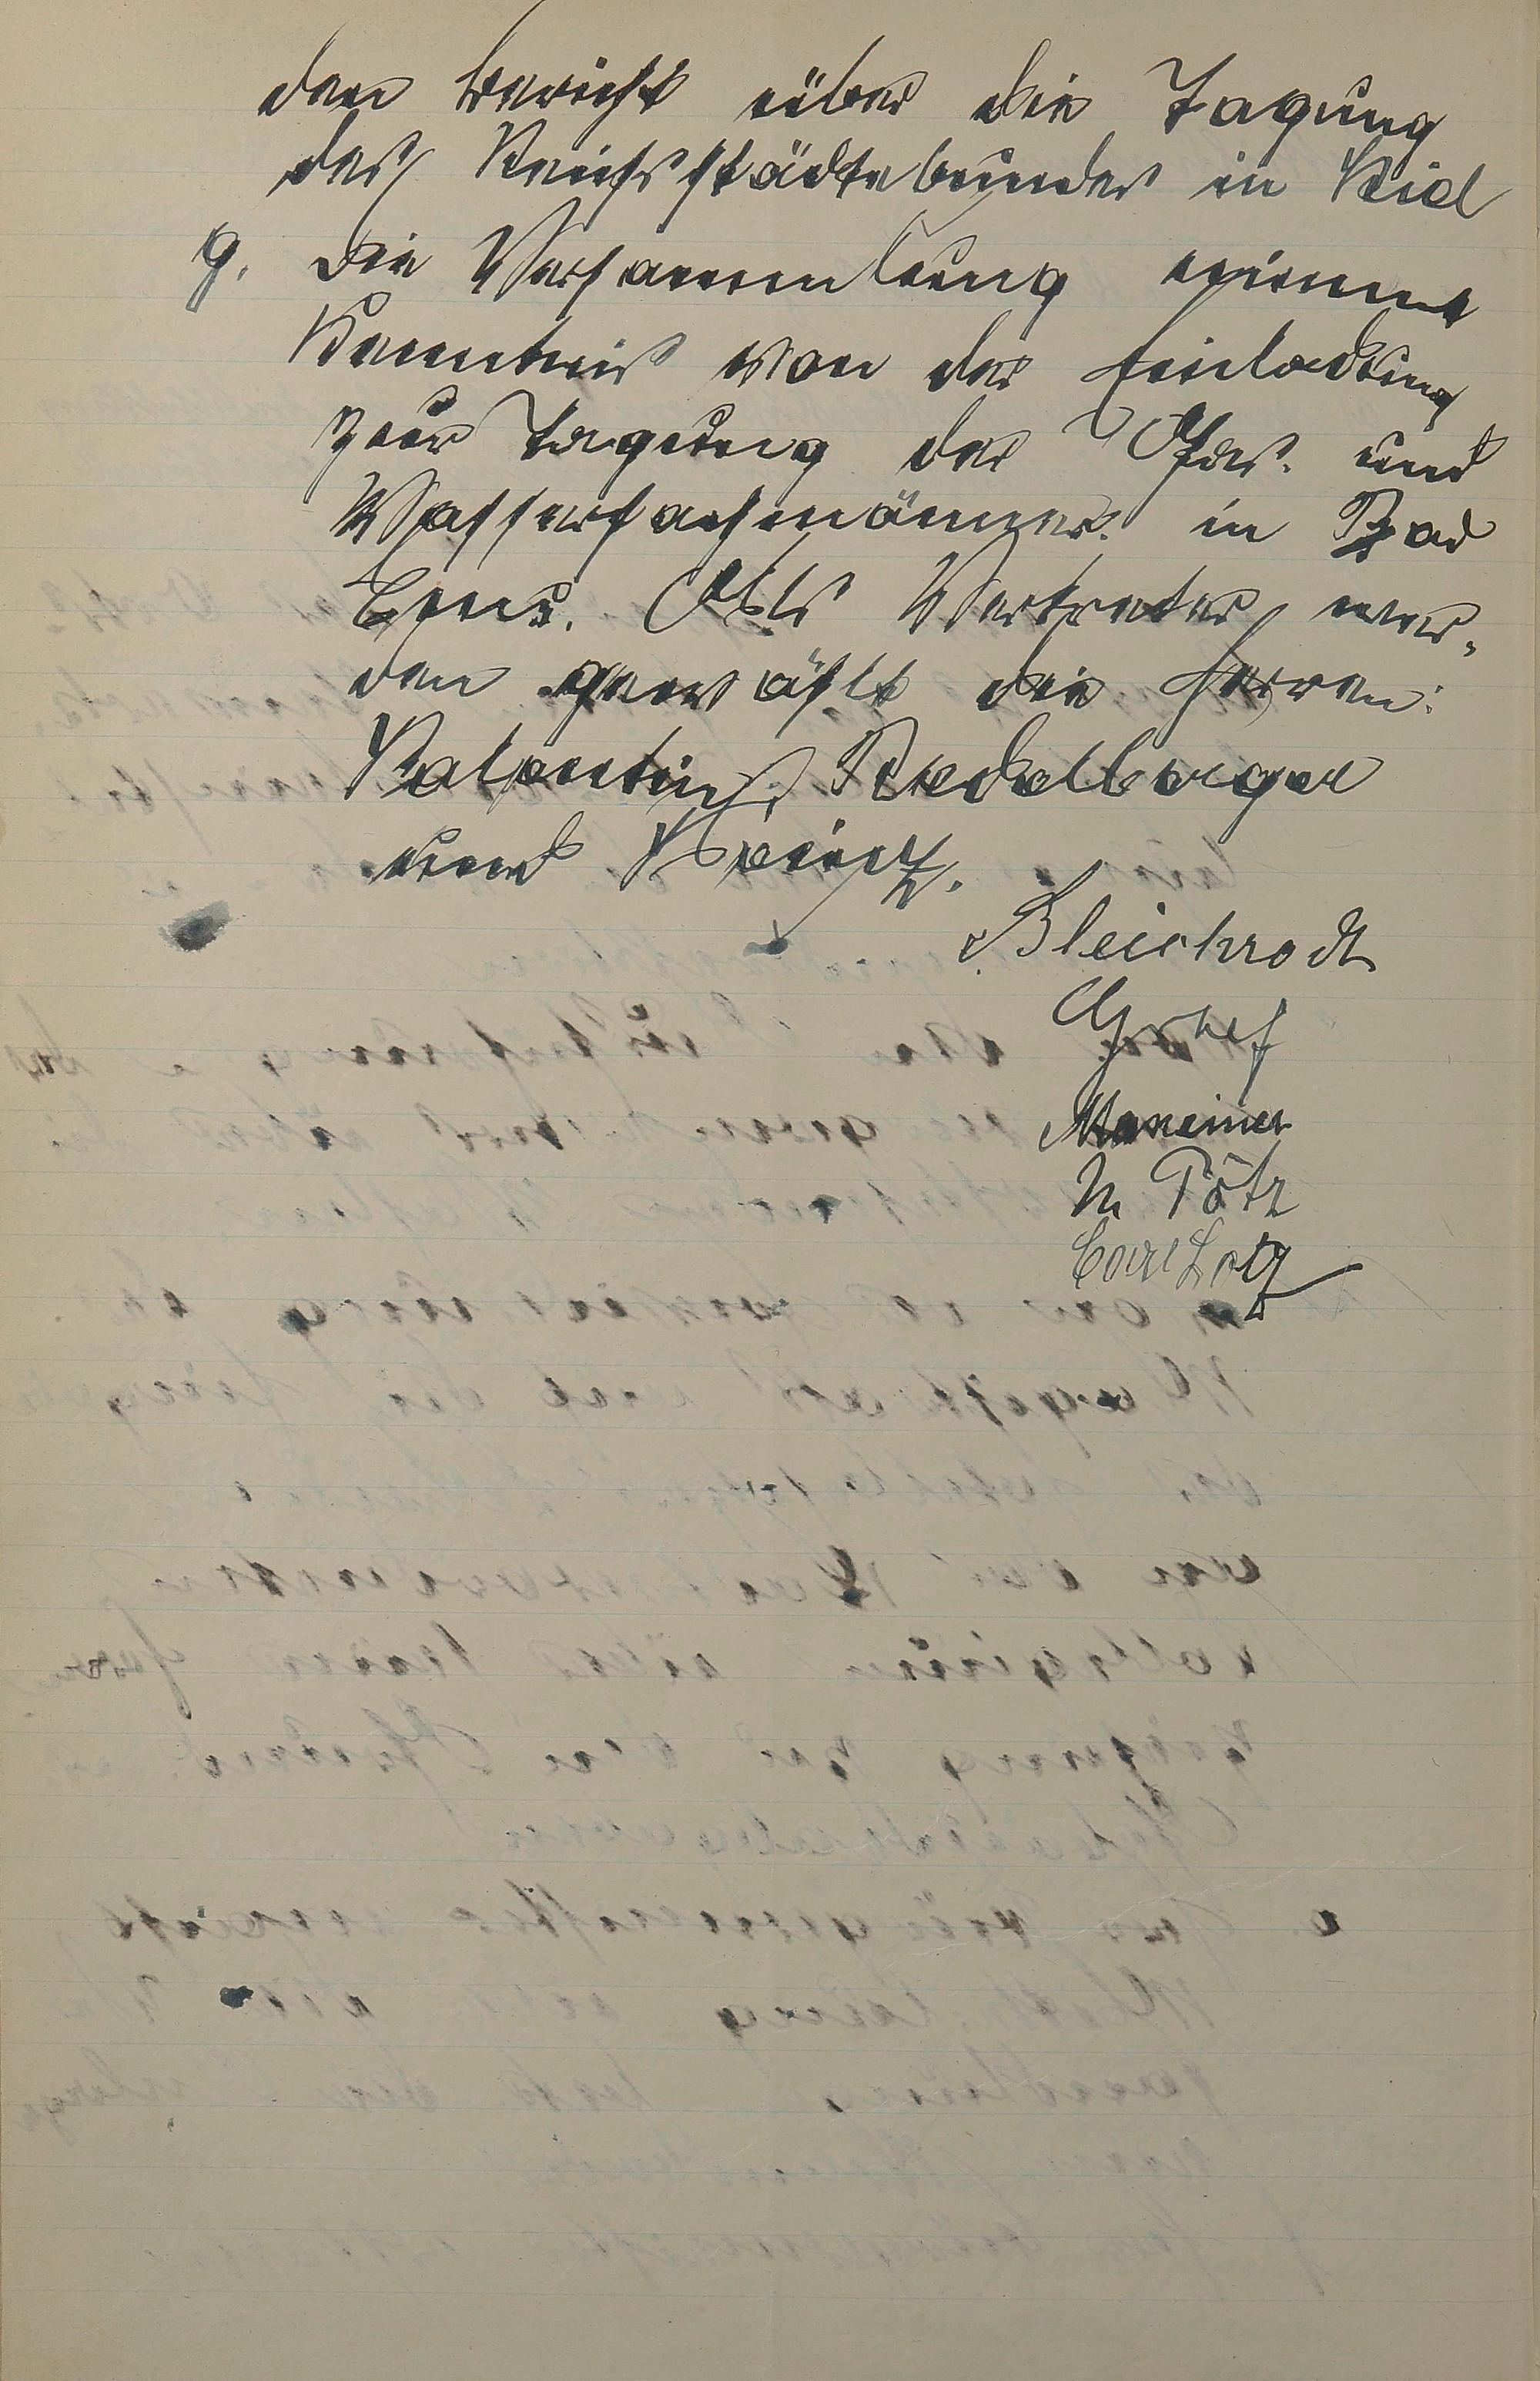 den Bericht über die Tagung
des Reichsstädtebundes in Kiel
9. Die Versammlung nimmt
Kenntnis von der Einladung
zur Tagung der Gas- und
Wasserfachmänner in Bad
Ems. Als Vertreter wer-
den gewählt die Herren:
Valentin, Redelberger
und
Bleichrodt
Graef
N Pötz
Carl Lotz